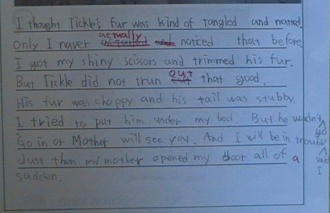 I thought Tickle's fur was kind of tangled and matted
Only I never actually noticed that before
I got my shiny scissors and trimmed his fur.
But Tickle did not trun out that good.
His fur was choppy and his tail was stubby.
I tried to put him under my bed. But he wouldn't
Go in or Mother will see you. And I will be in trouble
Just then my mother opened my door all of a
sudden.